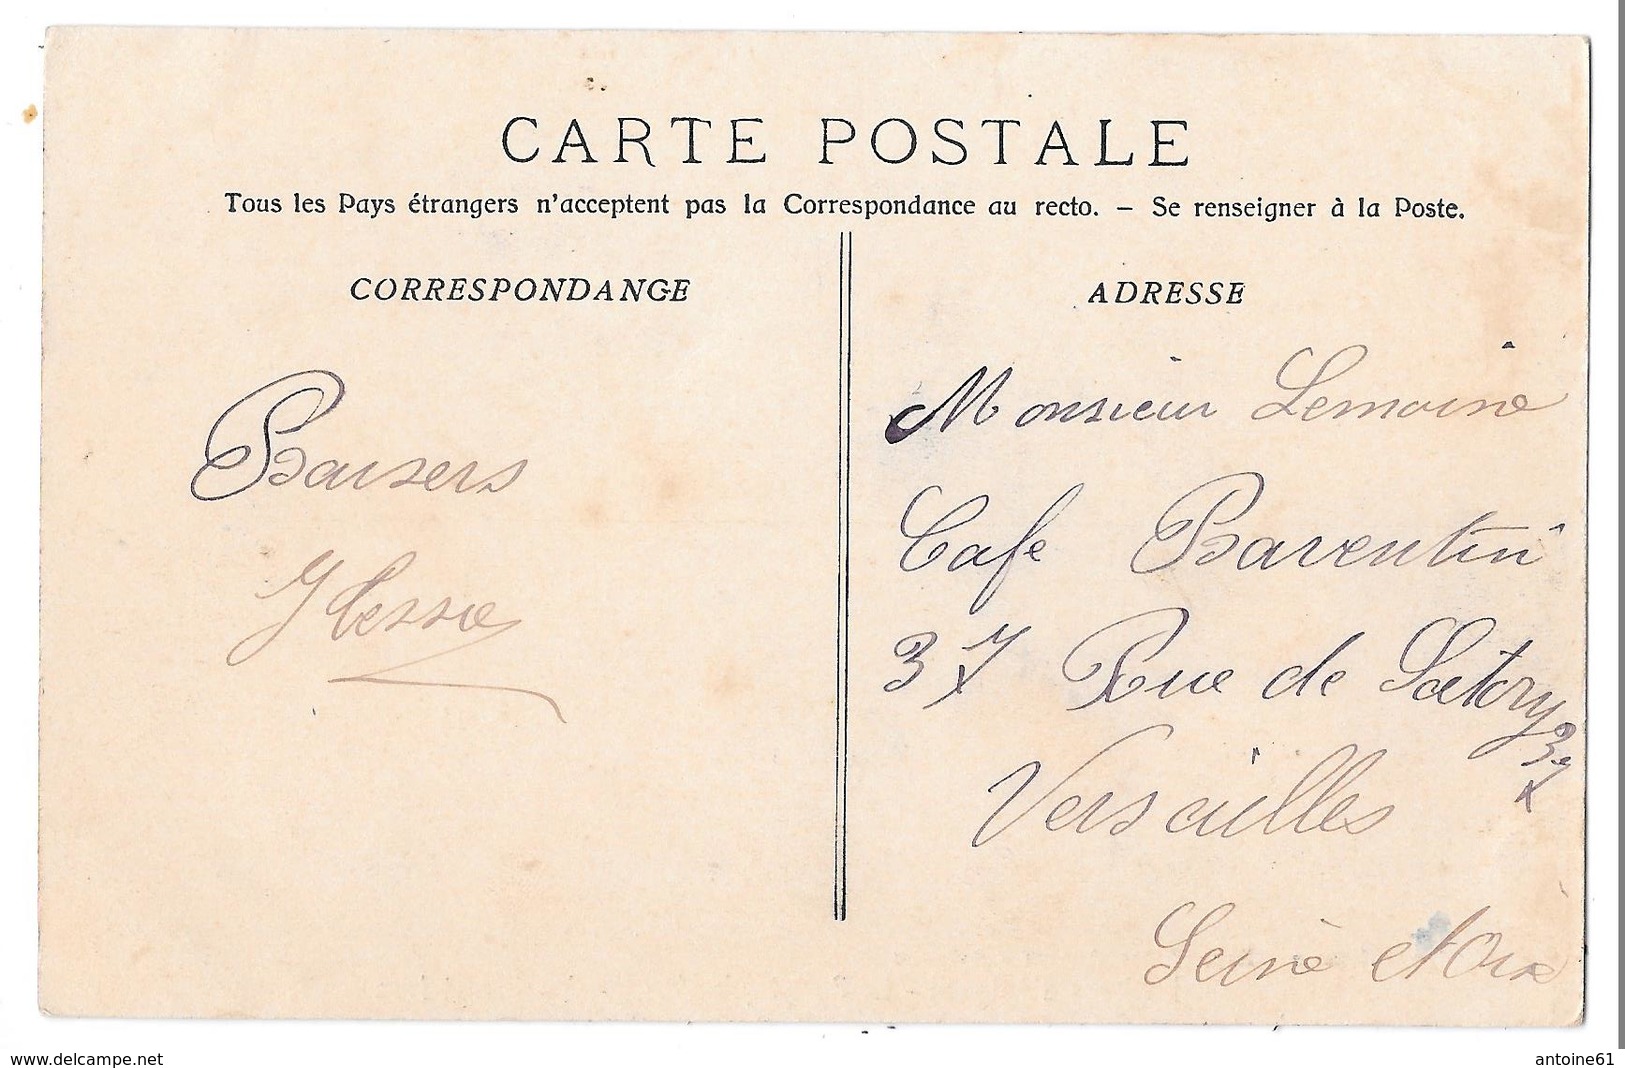 CARTE POSTALE
Tous les Pays étrangers n'acceptent pas la Correspondance au recto. — Se renseigner à la Poste.
CORRESPONDANCE
Baisers
ADRESSE
Monsieur Lemoine
Café Barentin
37 Rue de Satory 37
Versailles
Seine et Oise
www.delcampe.net
antoine61